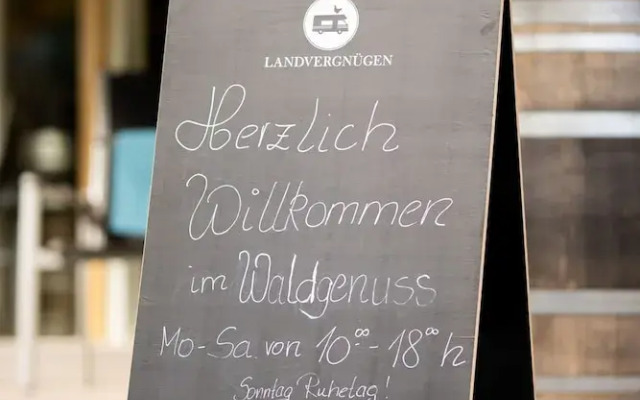 LANDVERGNÜGEN
Herzlich
Willkommen
im Waldgenuss
Mo-Sa. von 10⁰⁰-18⁰⁰ h
Sonntag Ruhetag!